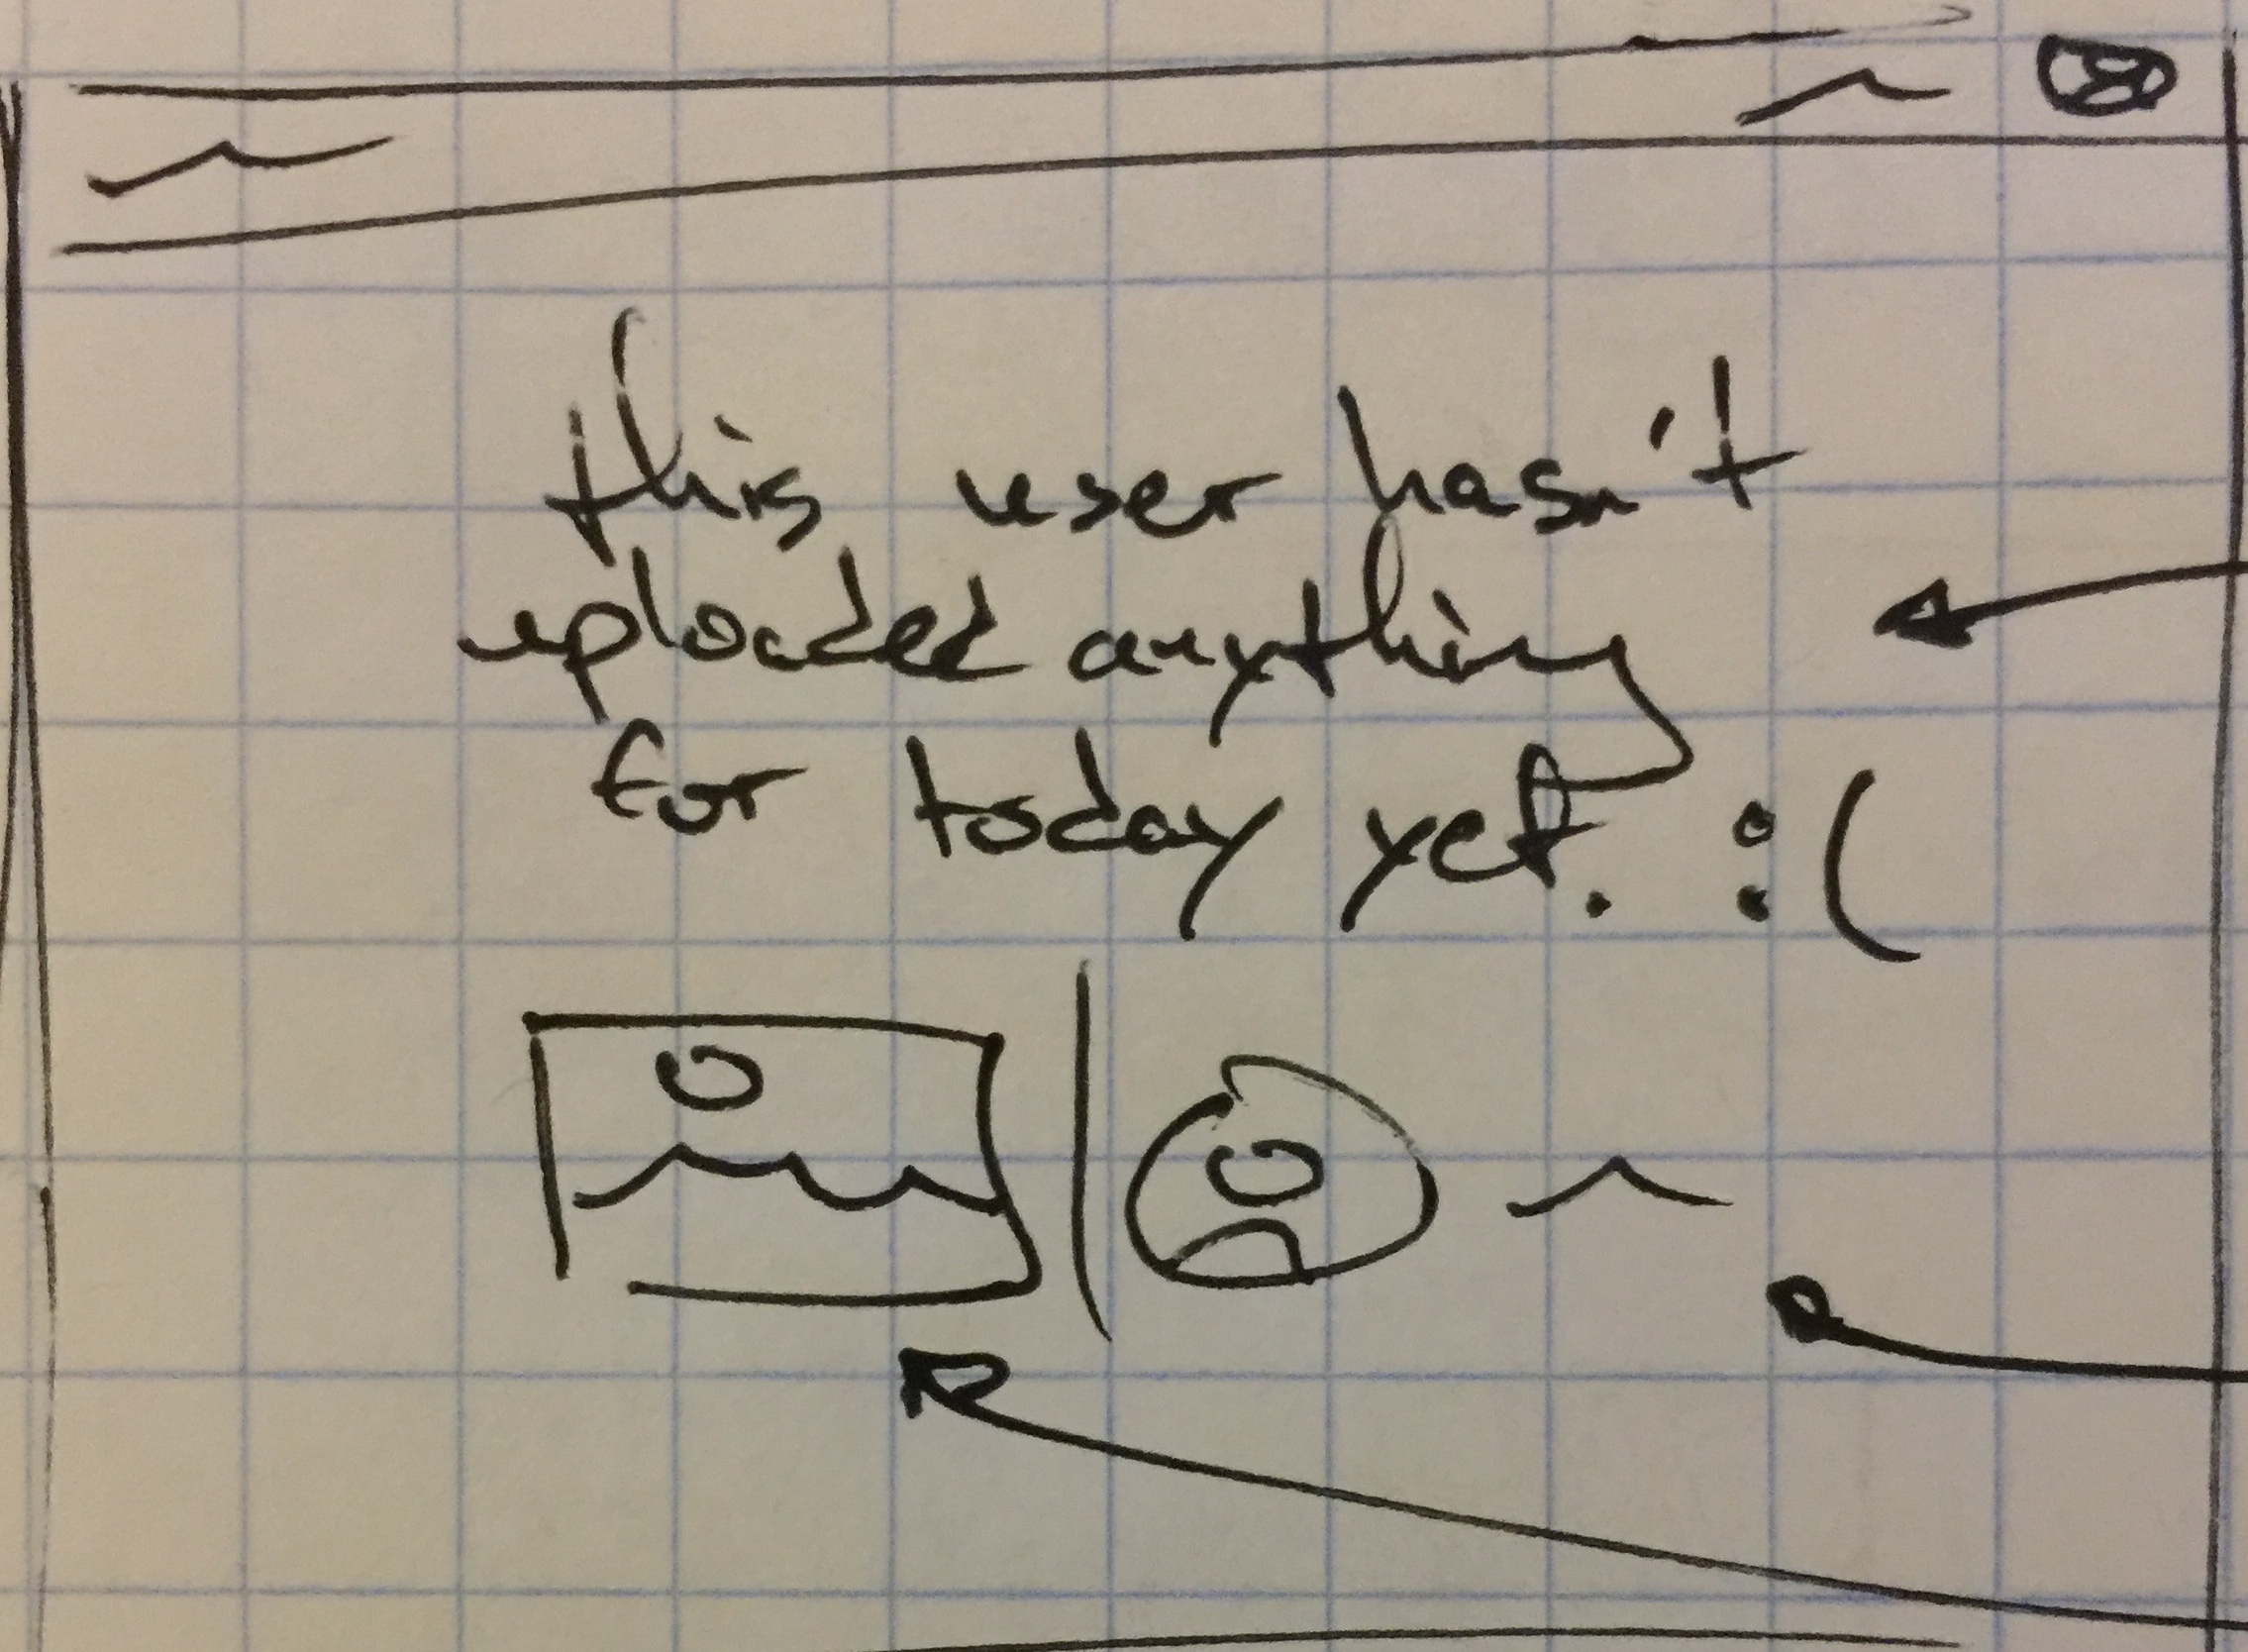 this user hasn't
uploaded anything
for today yet. :(